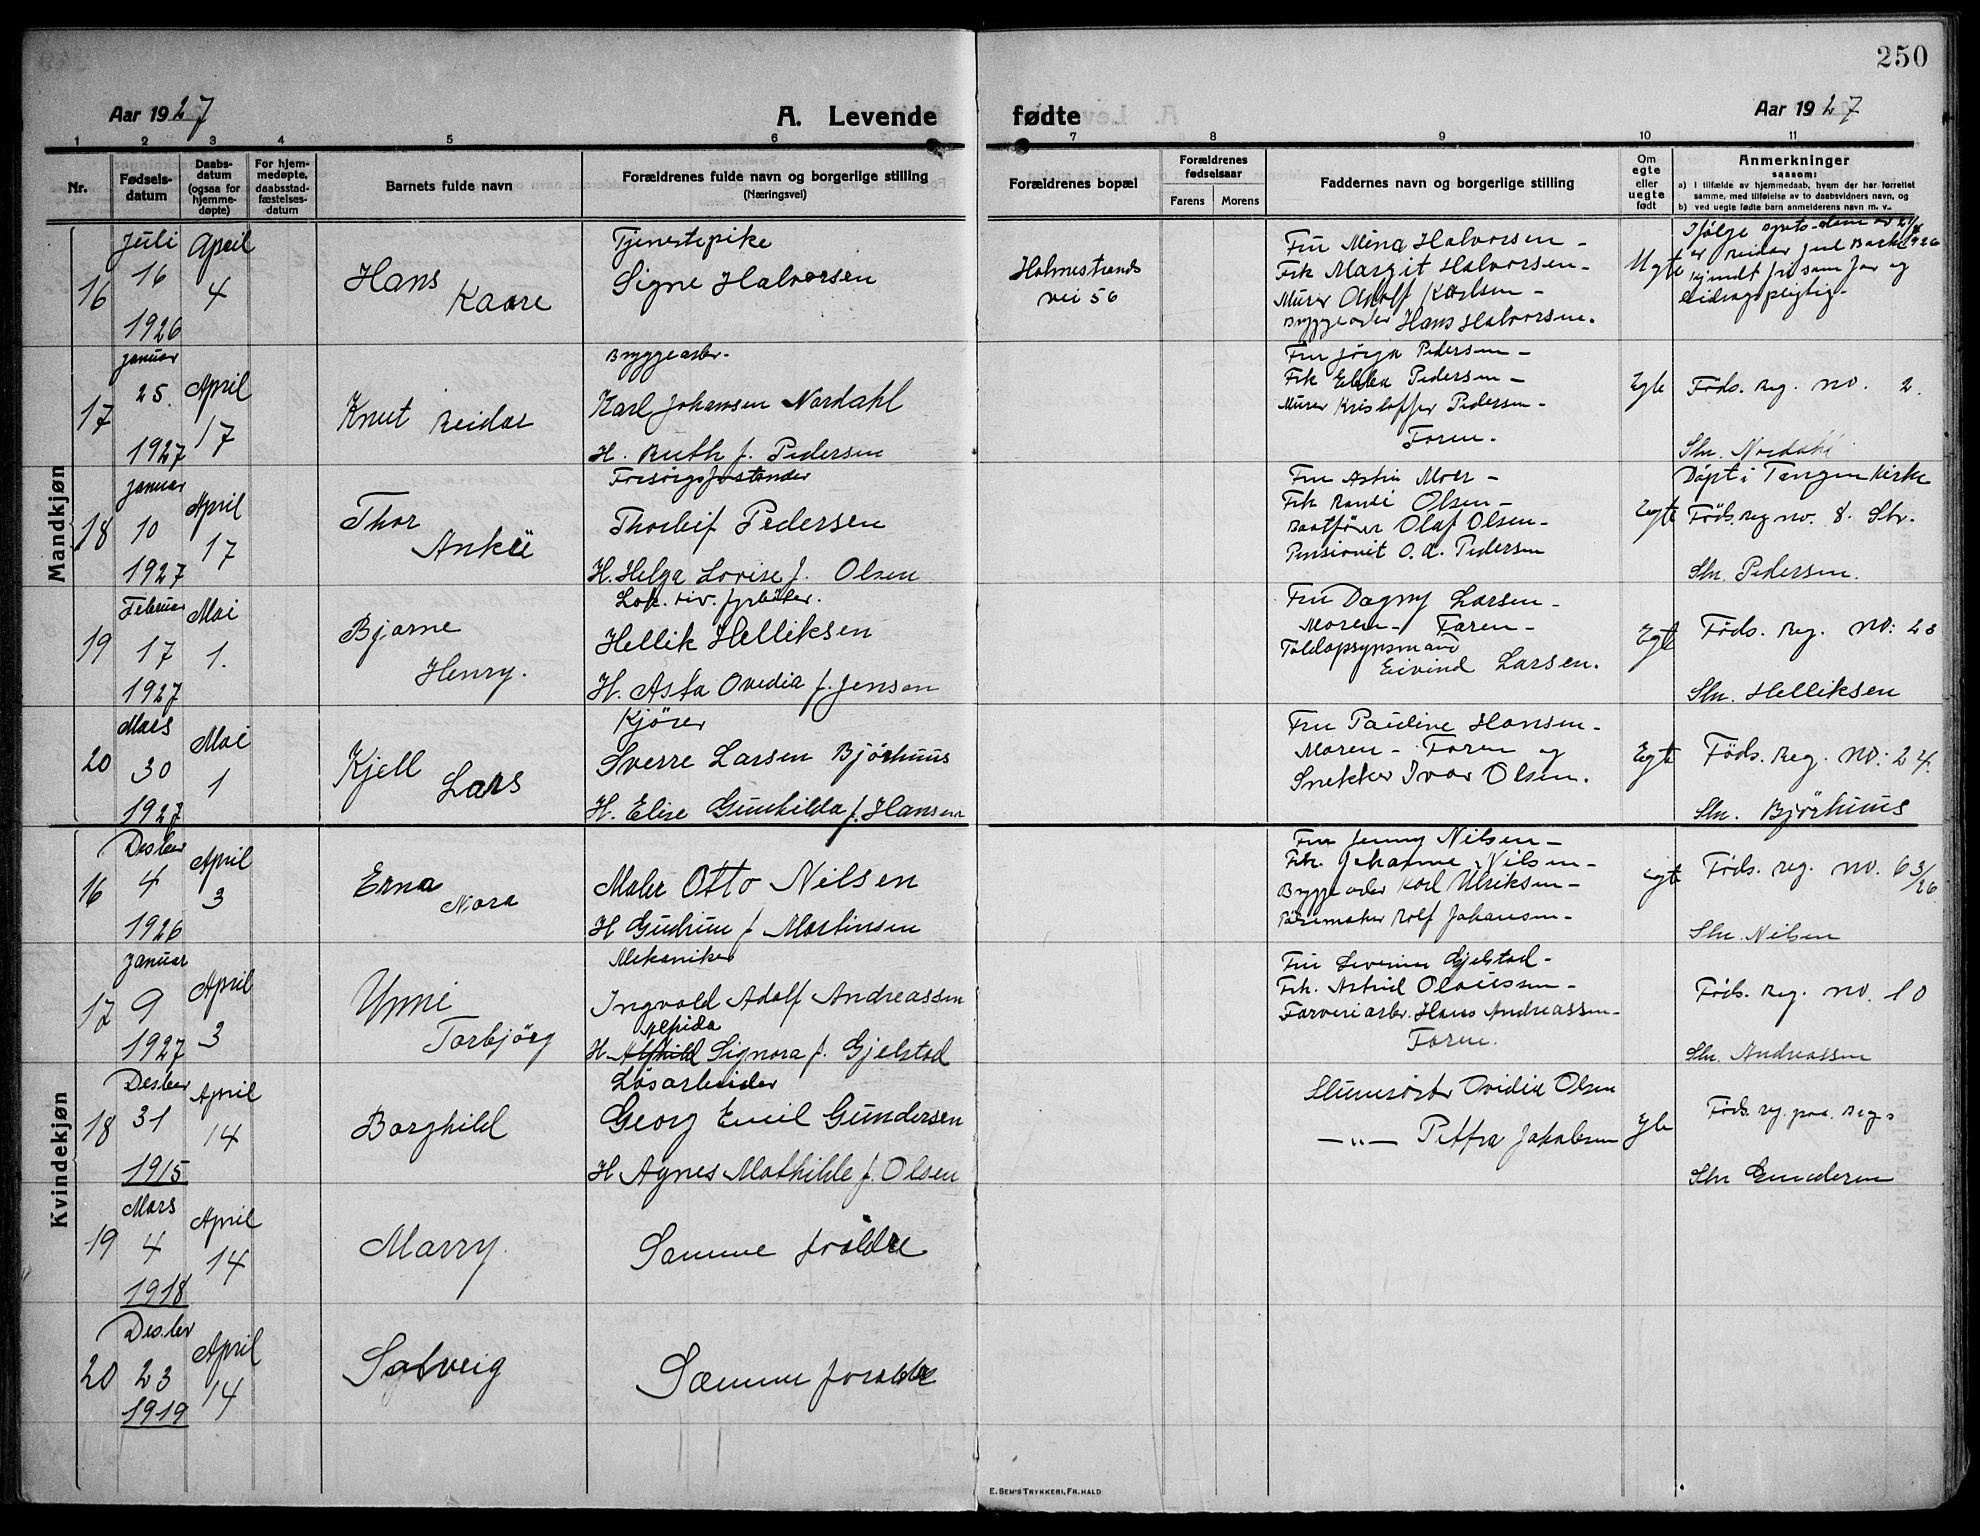 250
Aar 1927
A. Levende
fødte
Aar 1927
1 2 3 4 5 6 7 8 9 10 11
Nr.
Fødsels-
datum
Daabs-
datum
(ogsaa for
hjemme-
døpte)
For hjem-
medøpte,
daabsstad-
fæstelses-
datum
Barnets fulde navn
Forældrenes fulde navn og borgerlige stilling
(Næringsvei)
Forældrenes bopæl
Forældrenes
fødselsaar
Farens
Morens
Faddernes navn og borgerlige stilling
Om
egte
eller
uegte
født
Anmerkninger
saasom:
a) I tilfælde av hjemmedaab, hvem der har forrettet
samme, med tilføielse av to daabsvidners navn, og
b) ved uegte fødte barn anmelderens navn m. v..
Mandkjøn
16
Juli
16
1926
April
4
Hans
Kaare
Tjenestepike
Signe Halvorsen
Holmestrands
vei 56
Fru Mina Halvorsen -
Frk Margit Halvorsen -
Murer Adolf Karlsen -
Bryggearbr Hans Halvorsen.
Uegte
Ifølge
er Reidar
kjendt
bidragspligtig.
17
Januar
25.
1927
April
17
Knut Reidar
Bryggearbr.
Karl Johansen Nordahl
H. Ruth f. Pedersen
Fru Pedersen -
Frk Ebba Pedersen -
Murer Kristoffer Pedersen -
Faren.
Egte
Føds. reg. no. 2.
Sln. Nordahl
18
Januar
10
1927
April
17
Thor
Forsørgsforstander
Thorleif Pedersen
H. Helga Lovise f. Olsen
Fru Moer -
Frk Randi Olsen -
Baatfører Olaf Olsen -
Pensionist O. A. Pedersen
Egte
Døpt i Tangen Kirke
Føds. reg no. 8. Str.
Sln. Pedersen.
19
Februar
17
1927
Mai
1.
Bjarne
Henry.
Lok. fyrbøter.
Hellik Helliksen
H. Asta Ovedia f. Jensen
Fru Dagny Larsen -
Moren - Faren -
Toldopsynsmand
Eivind Larsen.
Egte
Føds. Reg. no: 23
Sln. Helliksen
20
Mars
30
1927
Mai
1
Kjell
Lars
Kjører
Sverre Larsen Bjørhuus
H. Elise Gunhilda f. Hansen
Fru Pauline Hansen -
Moren - Faren og
Snekker Ivar Olsen.
Egte
Føds. Reg. no: 24.
Sln. Bjørhuus
Kvindekjøn
16
Desbr
4
1926
April
3
Erna
Nora
Maler Otto Nilsen
H Gudrun f Martinsen
Fru Jenny Nilsen -
Frk. Johanne Nilsen -
Bryggearbr Karl Ulriksen -
Rolf Johansen -
Egte
Føds. reg. no. 63/26
Sln. Nilsen
17
Januar
9
1927
April
3
Unni
Torbjørg
Mekaniker
Ingvald Adolf Andreassen
H. Alfhild Signora f. Gjelstad
Fru Severine Gjelstad -
Frk. Astrid Olaussen -
Farveriarbr. Hans Andreassen -
Faren.
Føds. Reg. no. 10
Sln. Andreassen
18
Desber
31
1915
April
14
Borghild
Løsarbeider
Georg Emil Gundersen
H Agnes Mathilde f. Olsen
Slumsøster Ovidia Olsen
— „ — Petfra Jakobsen
Egte
Føds. reg.
Sln Gundersen
19
Mars
4
1918
April
14
Marry.
Samme foraldre
20
Desber
23
1919
April
14
Solveig
Samme foraldre
E. SEM'S TRYKKERI, FR.HALD